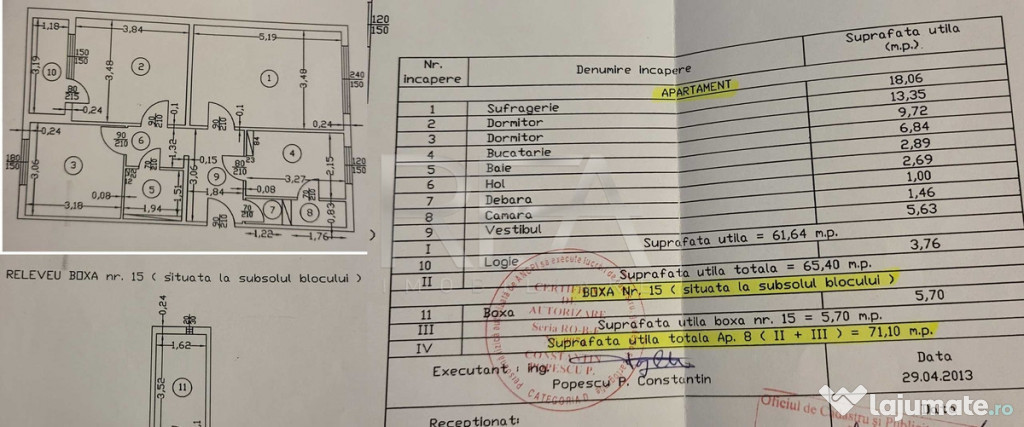 1,18
3,84
5,19
120
150
150
150
3,19
10
3,48
2
1
3,48
240
150
80
215
0,24
90
210
0,1
0,1
0,24
0,24
90
210
6
1,32
84
23
180
150
3,06
3
70
210
22
0,15
3,06
9
80
210
4
2,15
120
150
0,08
5
1,51
1,84
0,08
3,27
70
210
3,18
1,94
90
210
70
210
7
8
0,83
1,22
1,76
RELEVEU BOXA nr. 15 ( situata la subsolul blocului )
0,24
80
30
1,62
3,52
11
Nr. incapere Denumire incapere Suprafata utila (m.p.)
APARTAMENT
1 Sufragerie 18,06
2 Dormitor 13,35
3 Dormitor 9,72
4 Bucatarie 6,84
5 Baie 2,89
6 Hol 2,69
7 Debara 1,00
8 Camara 1,46
9 Vestibul 5,63
I Suprafata utila = 61,64 m.p.
10 Logie 3,76
II Suprafata utila totala = 65,40 m.p.
BOXA Nr. 15 ( situata la subsolul blocului )
11 Boxa 5,70
III Suprafata utila boxa nr. 15 = 5,70 m.p.
IV Suprafata utila totala Ap. 8 ( II + III ) = 71,10 m.p.
Executant : ing.
Popescu P. Constantin
Data
29.04.2013
CERTIFICAT
DE
AUTORIZARE
Seria RO-B-F
CONSTANTIN
POPESCU P.
CATEGORIA D
Receptionat:
Oficiul de Cadastru si Publicit
Data
REA
lajumate.ro